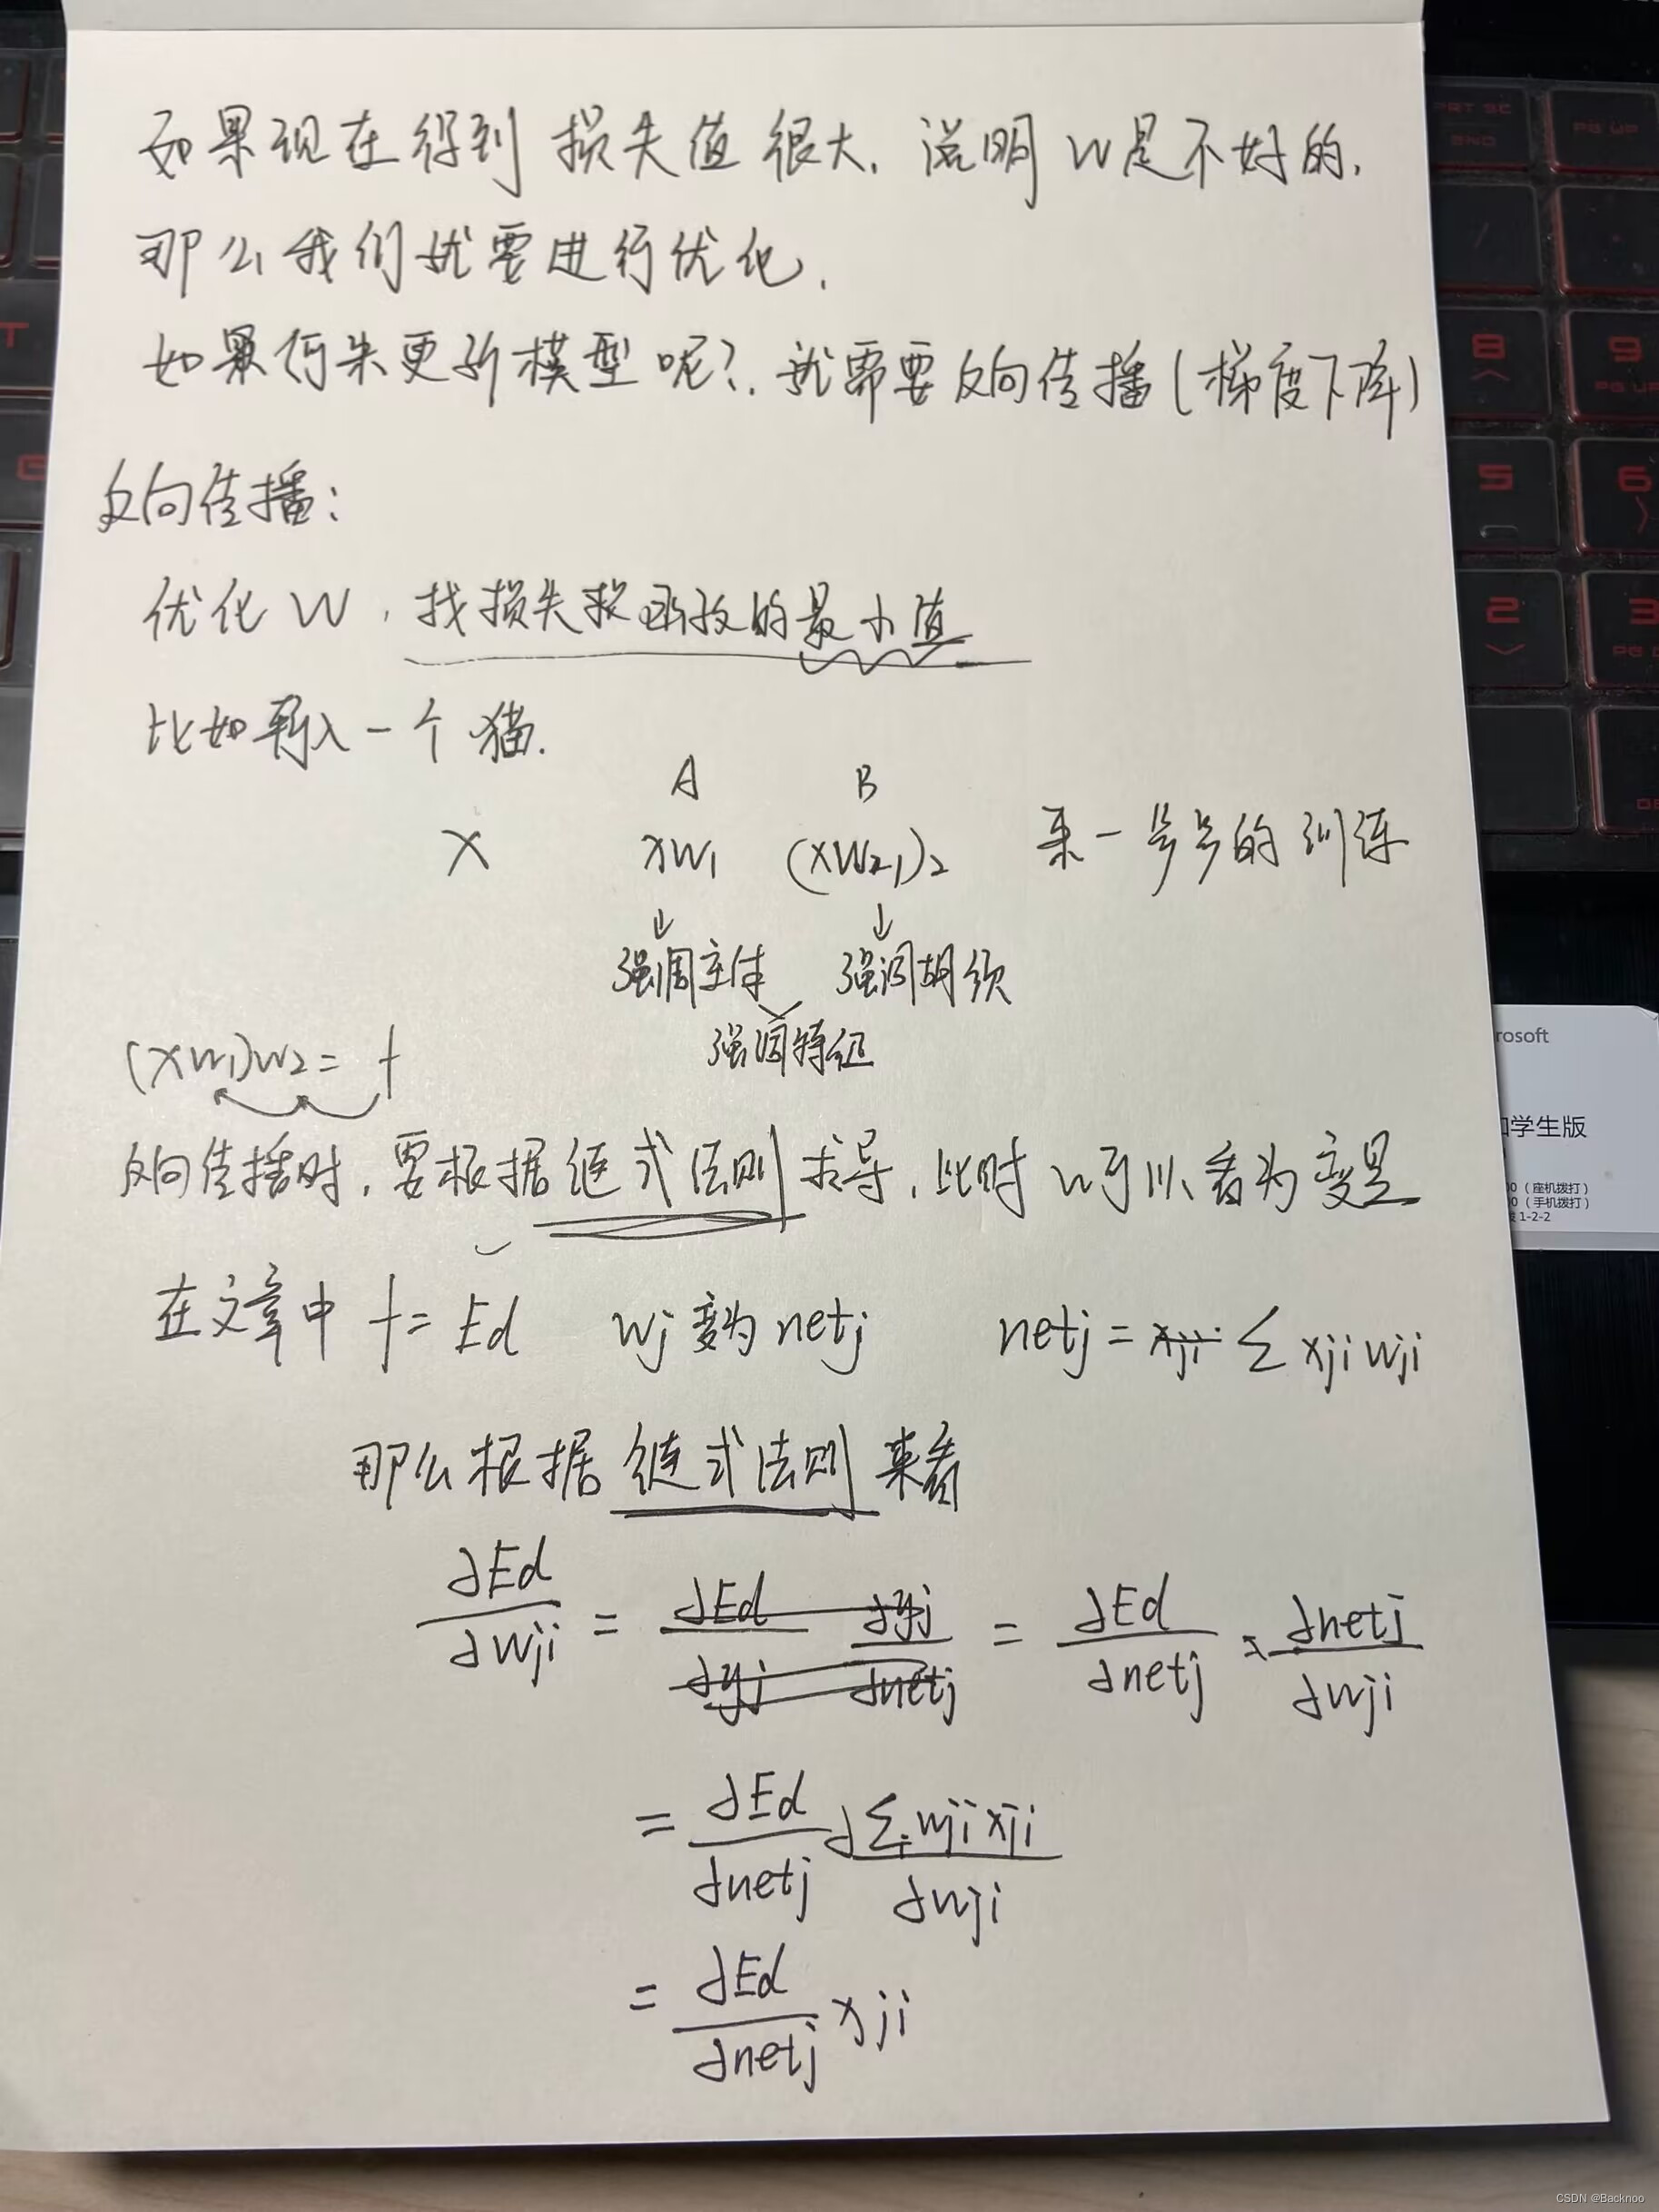 如果现在得到损失值很大，说明W是不好的，
那么我们就要进行优化．
如果何来更新模型呢？．就需要反向传播（梯度下降）
反向传播：
优化W，找损失函数的最小值
比如导入一个猫．
A B
X xw₁ (xw₂₁)₂ 来一步步的训练
↓ ↓
强调主体 强调胡须
强调特征
(xw₁)w₂ = f
反向传播时，要根据链式法则求导，此时w可以看为变量
在文章中 f = Ed wj变为netj netj = xji Σ xji wji
那么根据链式法则来看
∂Ed/∂wji = ∂Ed/∂yj ∂yj/∂netj = ∂Ed/∂netj × ∂netj/∂wji
= ∂Ed/∂netj ∂Σi wji xji/∂wji
= ∂Ed/∂netj xji
PRT SC
END
PG UP
8
9
PG UP
5
6
2
3
T
G
rosoft
学生版
（座机拨打）
（手机拨打）
1-2-2
CSDN @Backnoo